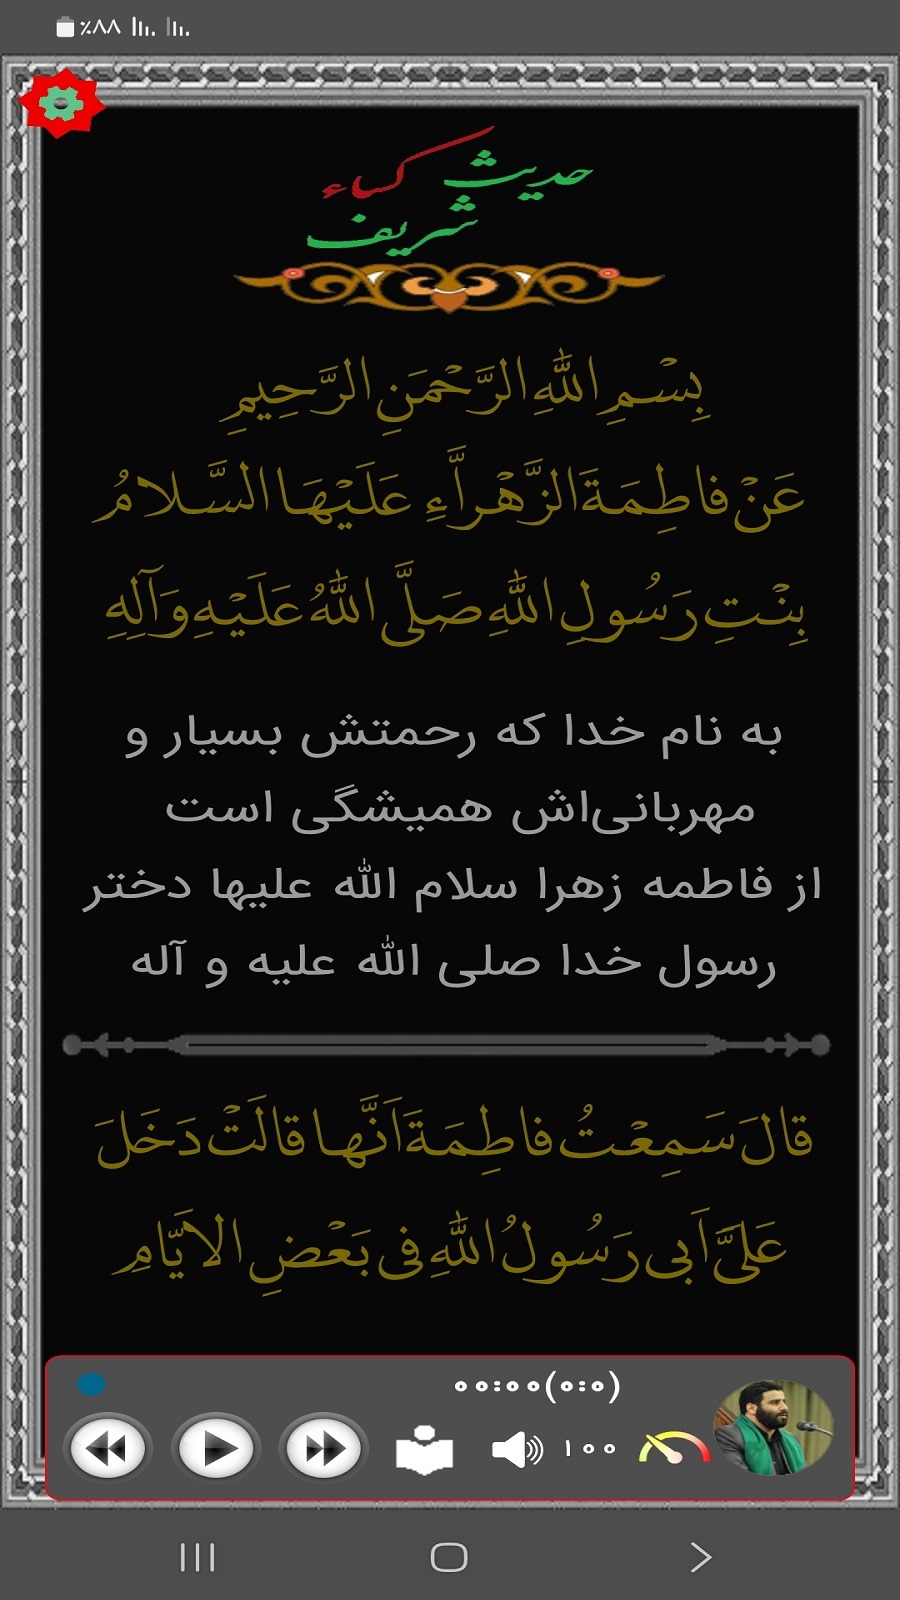 ٪۸۸
حدیث کساء
شریف
بِسْمِ اللّٰهِ الرَّحْمَنِ الرَّحِيمِ
عَنْ فاطِمَةَ الزَّهْراَّءِ عَلَيْهَا السَّلامُ
بِنْتِ رَسُولِ اللّٰهِ صَلَّى اللّٰهُ عَلَيْهِ وَآلِهِ
به نام خدا که رحمتش بسیار و
مهربانی‌اش همیشگی است
از فاطمه زهرا سلام الله علیها دختر
رسول خدا صلی الله علیه و آله
قالَ سَمِعْتُ فاطِمَةَ اَنَّها قالَتْ دَخَلَ
عَلَىَّ اَبى رَسُولُ اللّٰهِ فى بَعْضِ الاَيّامِ
۰۰:۰۰(۰:۰)
۱۰۰